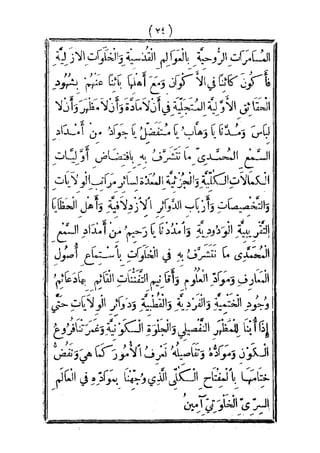 (٧٤)
المسامرات الروحية بالعوالم القدسية والخلوات الازلية
فأكون كائنا في الأكوان ومع أهلها بائنا عنهم بشهود
الحقائق الأولية المتجلية في أن لا مادة وأن لا مظهر وأن لا
لباس ومدنا يا وهاب يا متفضل يا جواد من أمداد
السمع المحمدى ما نتشرف به باقتضاض أوليات
الكمالات الكلية والجزئية الممدة لسائر مراتب الولايات
والتخصيصات وأرباب الدوائر الأزدلافية وأهل الحظايا
التقريبية الودودية وأمددنا يا رحيم من أمداد السمع
المحمدى ما نتشرف به في الخلوات باستماع أصول
المعارف ومواد العلوم وأقانيم التفننات القائم بها دعائم
وجود الختمية والفردية والقطبية ودوائر الولايات حتى
إذا أبنا للمظهر التفصيلي والجلوة الكونية وغمرتنا فروع
الكون ومواده وتفاصيله نعرف الأمور كما هي ونفض
ختامها بالمفتاح الكلى الذي وجهتنا بمواده في العالم
السرى الخلوتي آمين